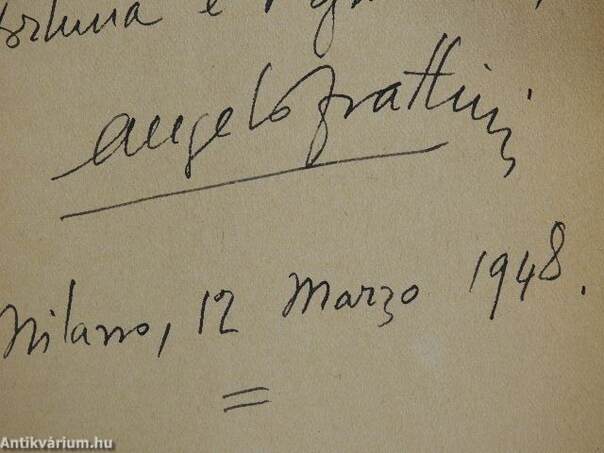 fortuna e
angelo frattini
Milano, 12 Marzo 1948.
=
Antikvárium.hu